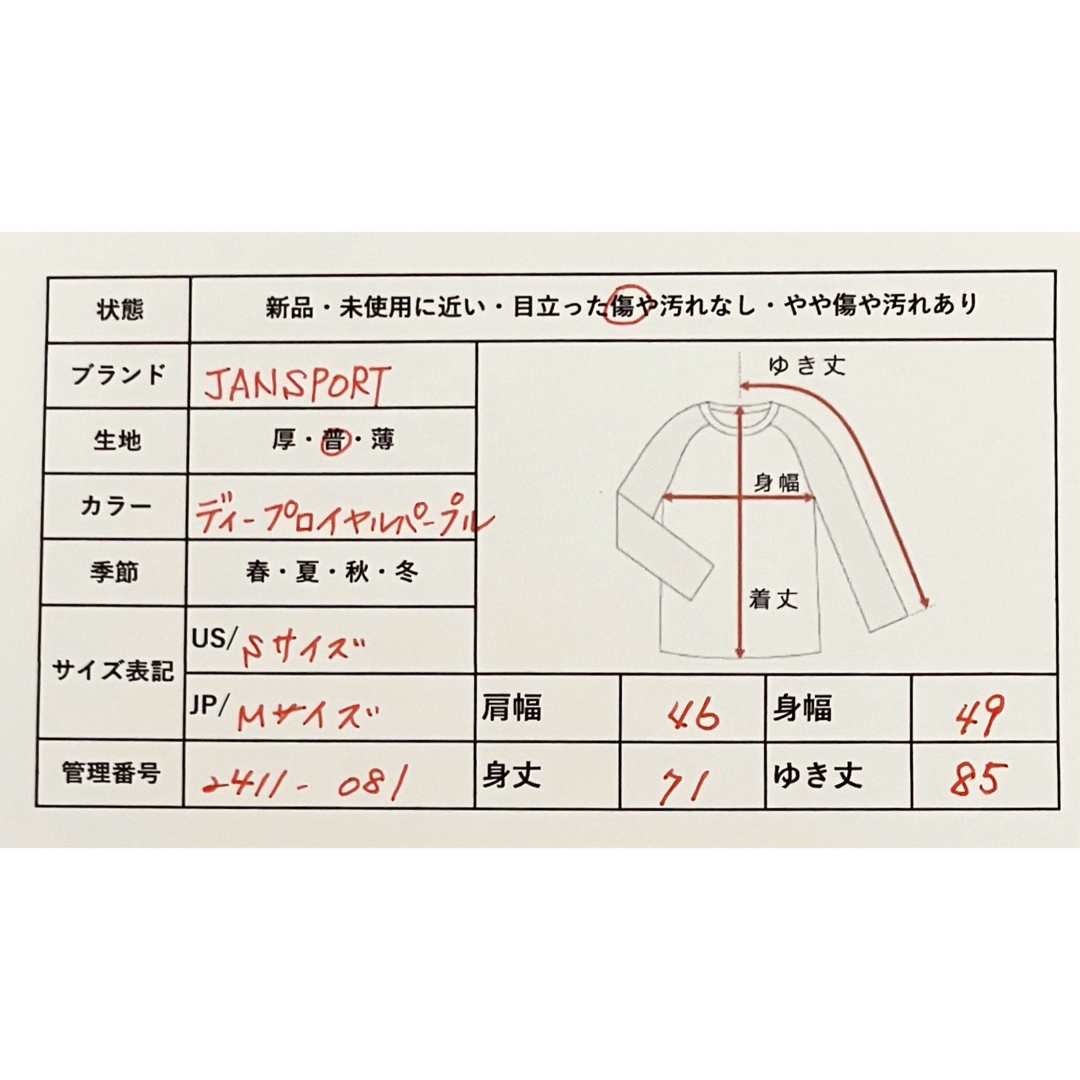 状態 新品・未使用に近い・目立った傷や汚れなし・やや傷や汚れあり
ブランド JANSPORT
生地 厚・普・薄
カラー ディープロイヤルパープル
季節 春・夏・秋・冬
サイズ表記 US/Sサイズ
JP/Mサイズ
管理番号 2411-081
ゆき丈
身幅
着丈
肩幅 46 身幅 49
身丈 71 ゆき丈 85